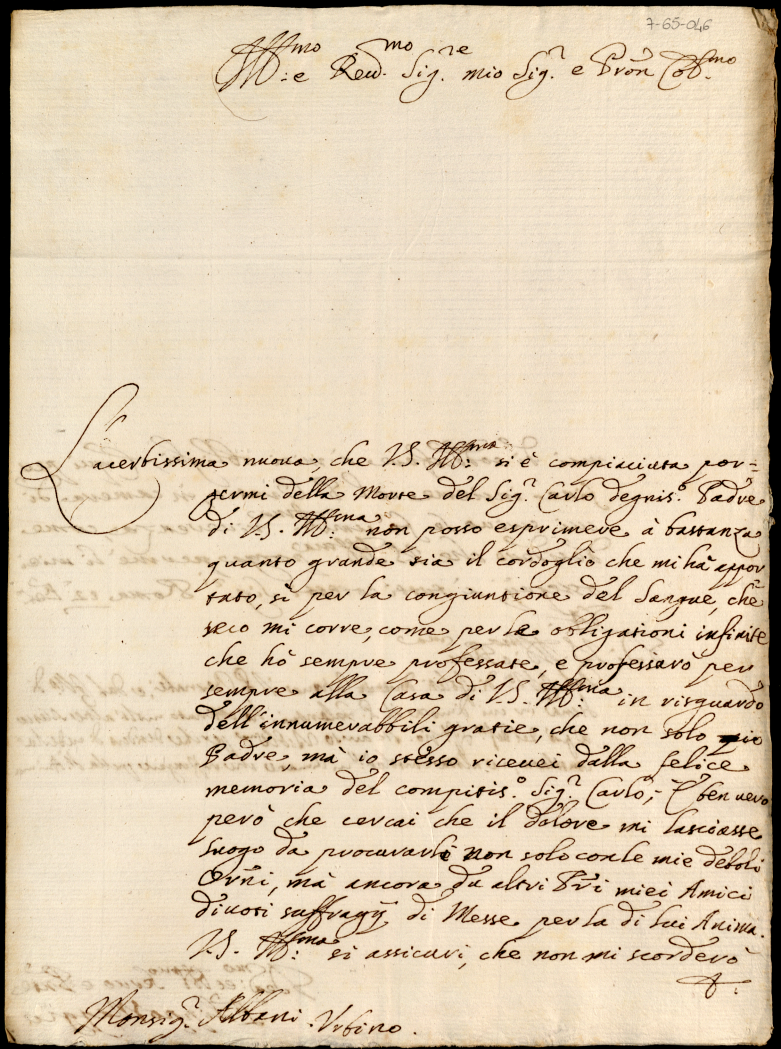 7-65-046
Ill.mo e Rev.mo Sig.re mio Sig.r e Pron Col.mo
L'acerbissima nuova, che V.S. Ill.ma si è compiaciuta por=
germi della Morte del Sig.r Carlo degnis.o Padre
di V.S. Ill.ma non posso esprimere à bastanza
quanto grande sia il cordoglio che mi hà appor
tato, sì per la congiuntione del Sangue, che
seco mi corre, come per le obligationi infinite
che hò sempre professate, e professarò per
sempre alla Casa di V.S. Ill.ma in risguardo
dell'innumerabbili gratie, che non solo mio
Padre, mà io stesso ricevei dalla felice
memoria del compitis.o Sig.r Carlo; È ben vero
però che cercai che il dolore mi lasciasse
luogo da procurarli non solo con le mie deboli
Orñi, mà ancora da altri Pri miei Amici
divoti suffragij di Messe per la di lui Anima.
V.S. Ill.ma si assicuri, che non mi scorderò
Monsig.r Albani. Urbino.